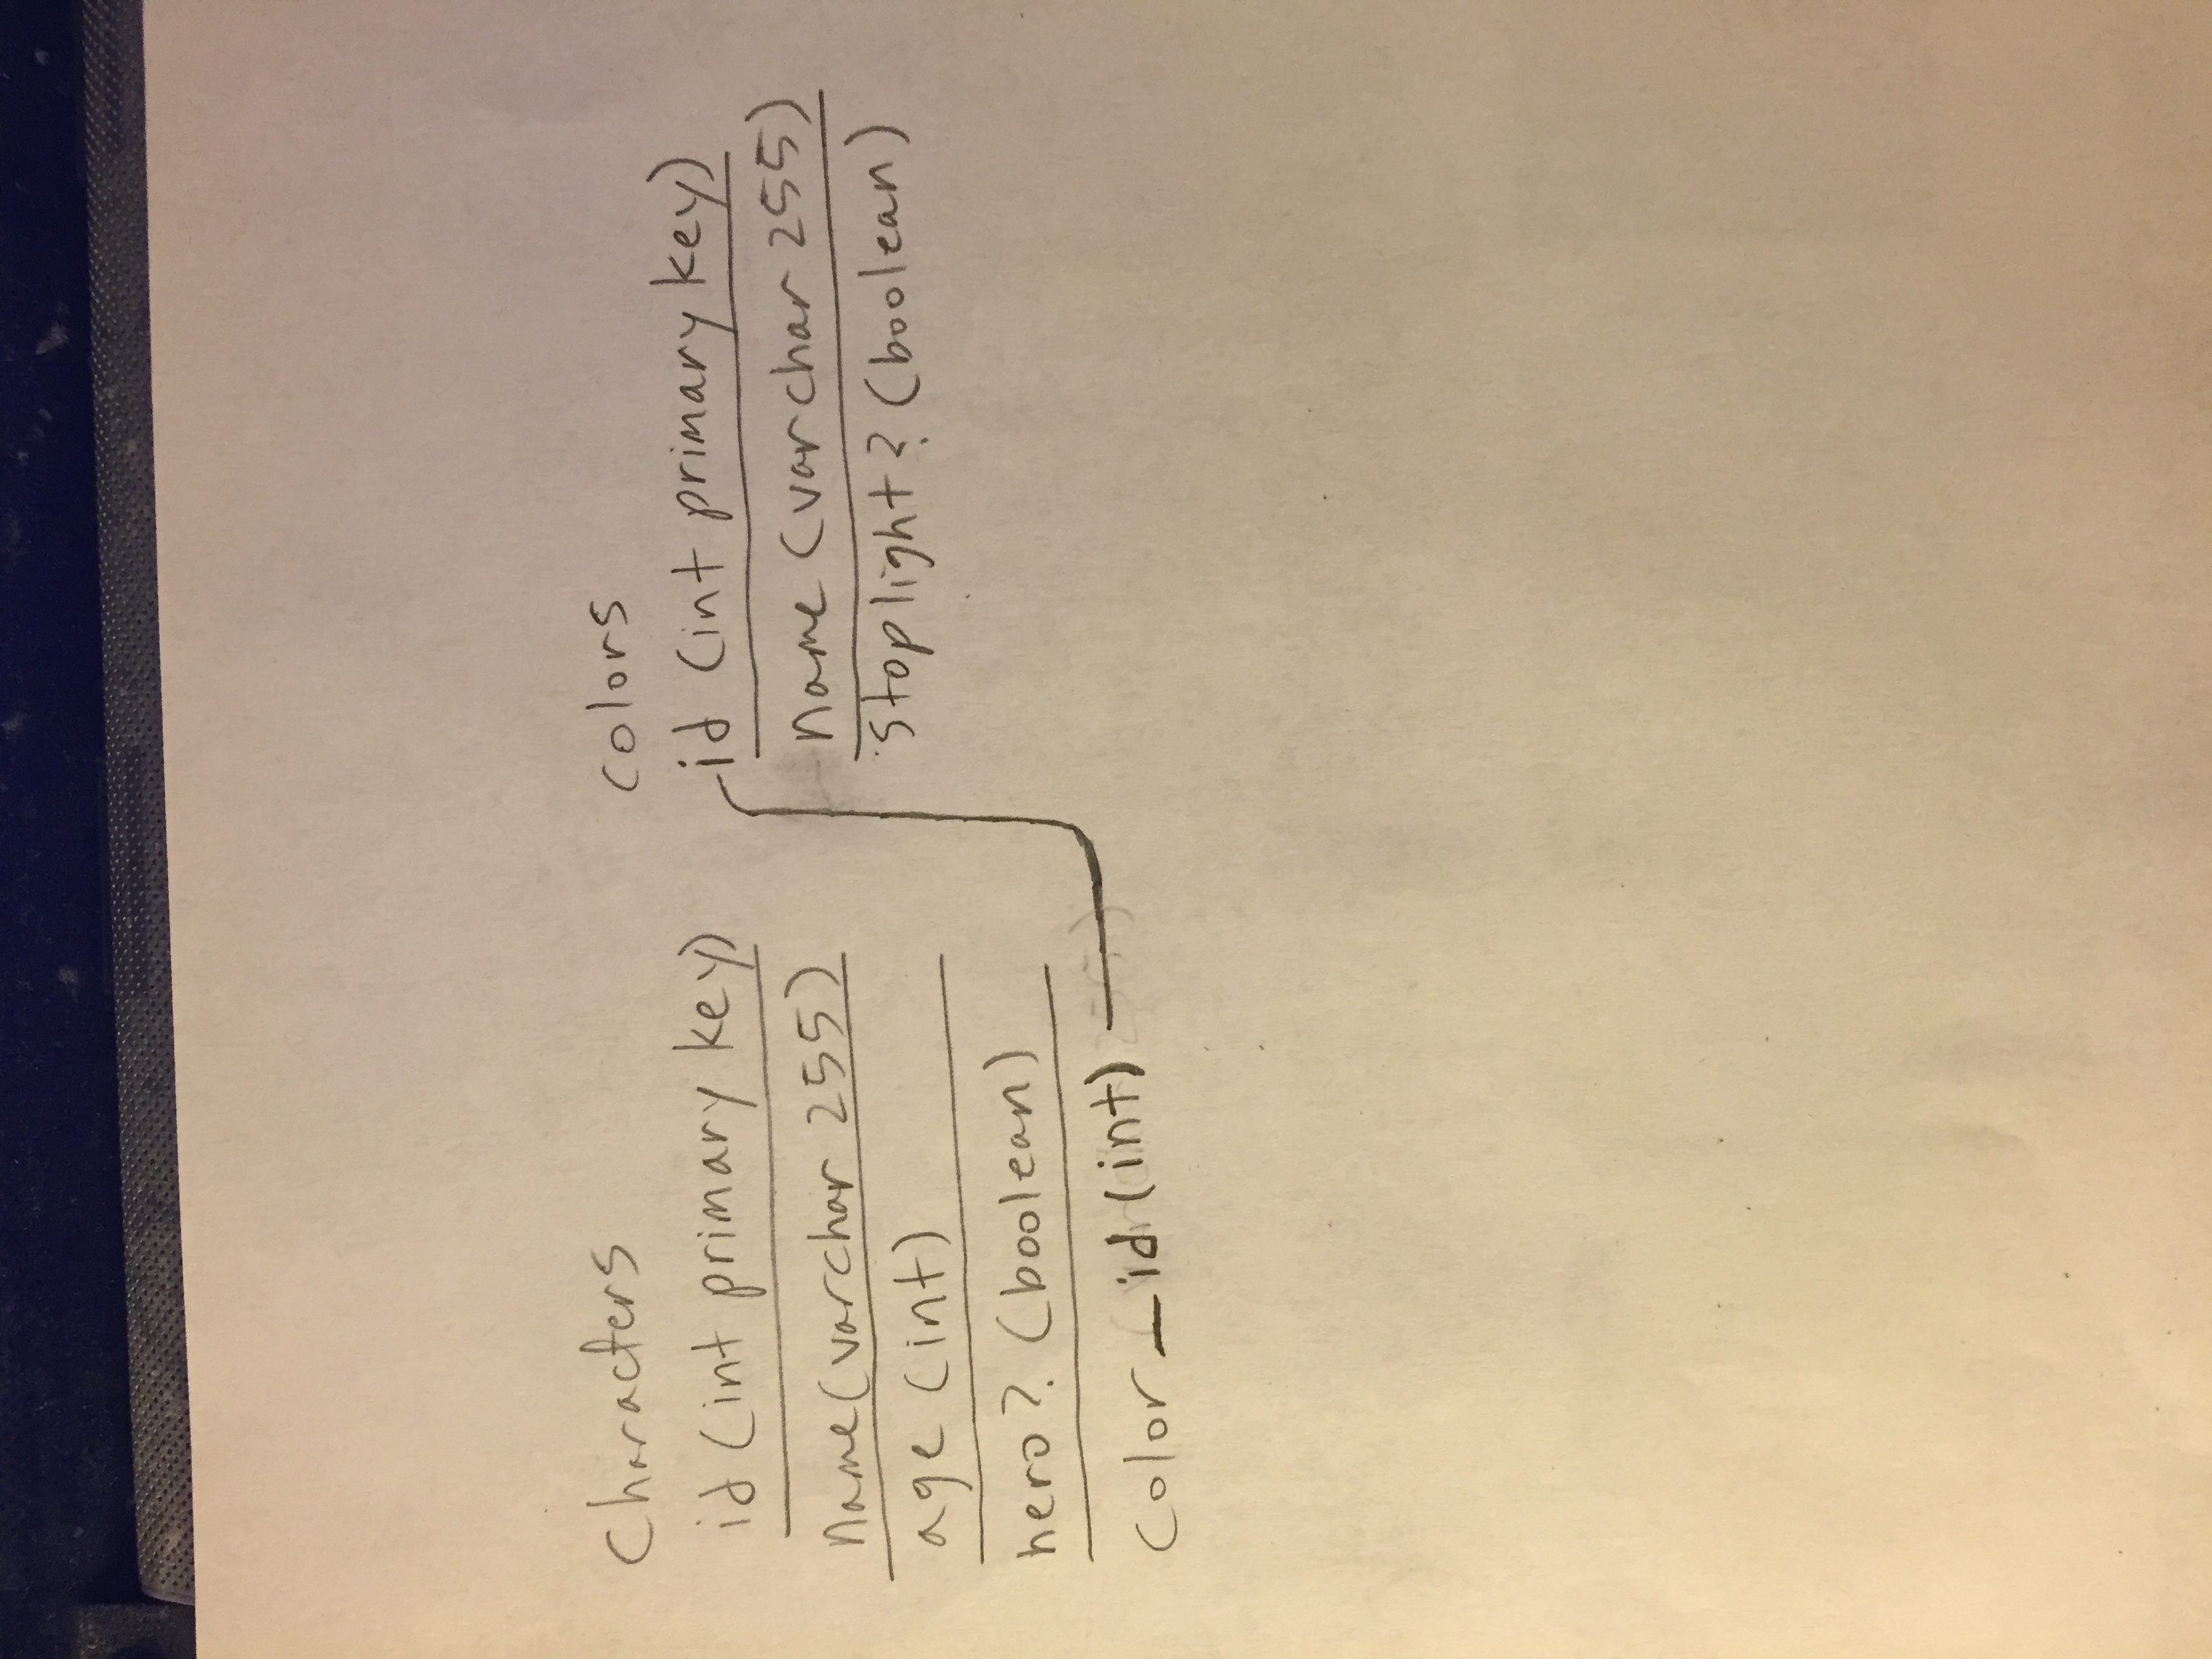 Characters
id (int primary key)
name (varchar 255)
age (int)
hero? (boolean)
color_id (int)
colors
id (int primary key)
name (varchar 255)
stoplight? (boolean)